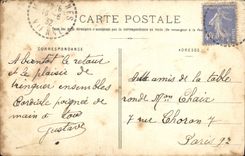 CARTE POSTALE
CORRESPONDANCE
ADRESSE
A bientot le retour
et le plaisir de
trinquer ensembles
Cordiale poignée de
main à tous
Gustave
aux amis de la table
ronde Mon Chaix
7 rue Choron 7
Paris 9e